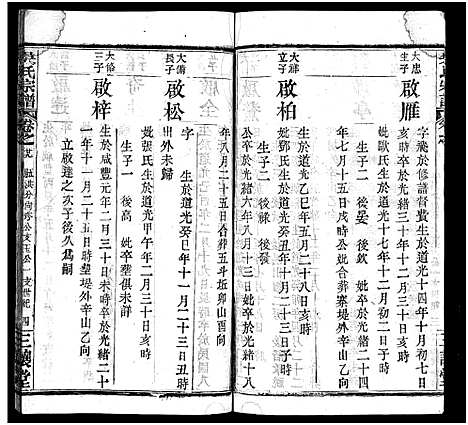 大忠
三子
啟雁
字飛於修譜督贊生於道光十四年十月初七日
亥時卒於光緒三十年十二月三十日亥時
妣歐氏生於道光十七年十二月初六日
生子二 後晏 後欽 妣卒於光緒二十四
年七月十五日戌時公妣合葬寨堤外辛山乙向
大祥
立子
啟柏
生於道光乙巳年五月二十八日亥時
妣鄧氏生於道光癸丑年十月二十五日寅時
生子二 後祿 後發
公卒於光緒六年八月十三日妣卒於光緒十八
年八月二十五日合葬五斗坵卯山酉向
大備
長子
啟松
生於道光癸巳年十一月二十三日丑時
出外未歸
妣張氏生於道光甲午年二月三十日亥時
生子一 後高 妣卒塟俱未詳
大脩
三子
啟梓
生於咸豐元年二月三十日未時卒於光緒二十
一年十一月二十五日時塟堤外辛山乙向
立啟達之次子後久爲嗣
氏宗譜
卷之
世紀
四
三讓堂